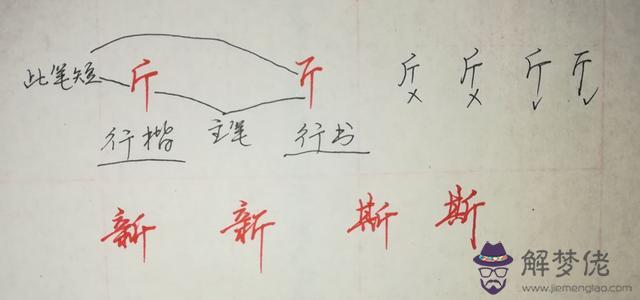 此笔短 斤 斤 斤 斤 斤 斤
行楷 主笔 行书
新 新 斯 斯
解梦佬
www.jiemenglao.com